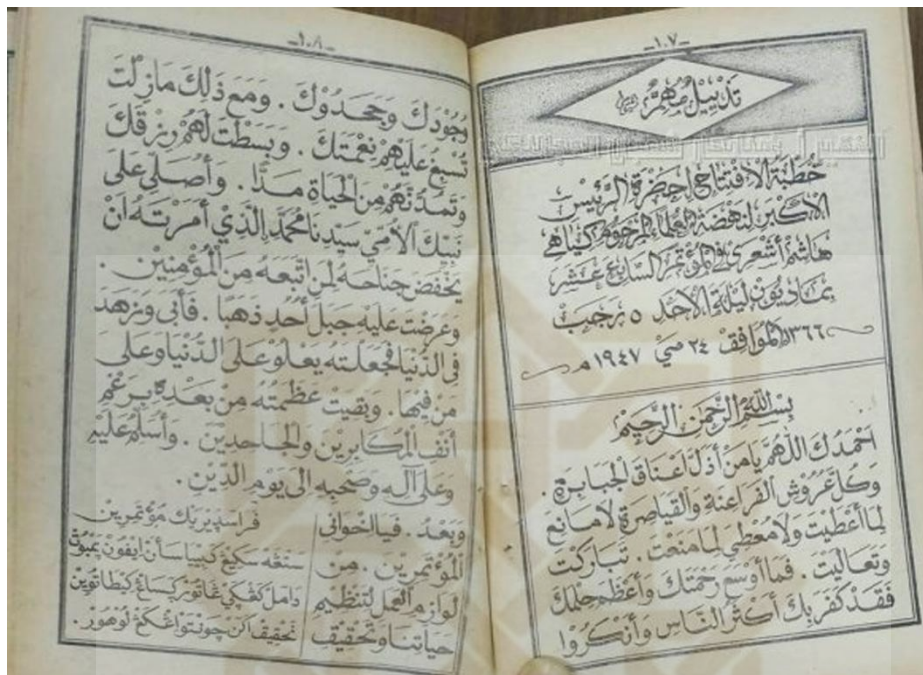 -١٠٧-
تَذْيِيْلٌ مُهِمٌّ
خُطْبَةُ الْاِفْتِتَاحِ لِحَضْرَةِ الرَّئِيْسِ
الْاَكْبَرِ لِنَهْضَةِ الْعُلَمَاءِ الْمَرْحُوْمِ كِيَاهِي
هَاشِمْ أَشْعَرِي فِي الْمُؤْتَمَرِ السَّابِعَ عَشَرَ
بِمَادِيُوْنْ لَيْلَةَ الْاَحَدِ ٥ رَجَب
١٣٦٦هـ الْمُوَافِقْ ٢٤ مَيْ ١٩٤٧ م
بِسْمِ اللهِ الرَّحْمٰنِ الرَّحِيْمِ
اَحْمَدُكَ اللّٰهُمَّ يَا مَنْ أَذَلَّ أَعْنَاقَ الْجَبَابِرَةِ .
وَكُلَّ عُرُوْشِ الْفَرَاعِنَةِ وَالْقَيَاصِرَةِ لَا مَانِعَ
لِمَا أَعْطَيْتَ وَلَا مُعْطِيَ لِمَا مَنَعْتَ . تَبَارَكْتَ
وَتَعَالَيْتَ . فَمَا أَوْسَعَ رَحْمَتَكَ وَأَعْظَمَ حِلْمَكَ
فَقَدْ كَفَرَ بِكَ أَكْثَرُ النَّاسِ وَأَنْكَرُوْا
-١٠٨-
وُجُوْدَكَ وَجَحَدُوْكَ . وَمَعَ ذٰلِكَ مَازِلْتَ
تُسْبِغُ عَلَيْهِمْ نِعْمَتَكَ . وَبَسَطْتَ لَهُمْ رِزْقَكَ
وَتَمُدُّ لَهُمْ مِنَ الْحَيَاةِ مَدًّا . وَأُصَلِّي عَلَى
نَبِيِّكَ الْاُمِّيِّ سَيِّدِنَا مُحَمَّدٍ الَّذِيْ أَمَرْتَهُ اَنْ
يَخْفِضَ جَنَاحَهُ لِمَنِ اتَّبَعَهُ مِنَ الْمُؤْمِنِيْنَ .
وَعَرَضْتَ عَلَيْهِ جَبَلَ أُحُدٍ ذَهَبًا . فَأَبَى وَزَهَدَ
فِى الدُّنْيَا فَجَعَلْتَهُ يَعْلُوْ عَلَى الدُّنْيَا وَعَلَى
مَنْ فِيْهَا . وَبَقِيَتْ عَظَمَتُهُ مِنْ بَعْدِهِ بِرَغْمِ
أَنْفِ الْمُكَابِرِيْنَ وَالْجَاحِدِيْنَ . وَأُسَلِّمُ عَلَيْهِ
وَعَلَى آلِهِ وَصَحْبِهِ اِلَى يَوْمِ الدِّيْنِ .
وَبَعْدُ . فَيَا اِخْوَانِي
الْمُؤْتَمِرِيْنَ . مِنْ
لَوَازِمِ الْعَمَلِ لِتَنْظِيْمِ
حَيَاتِنَا وَتَحْقِيْقِ